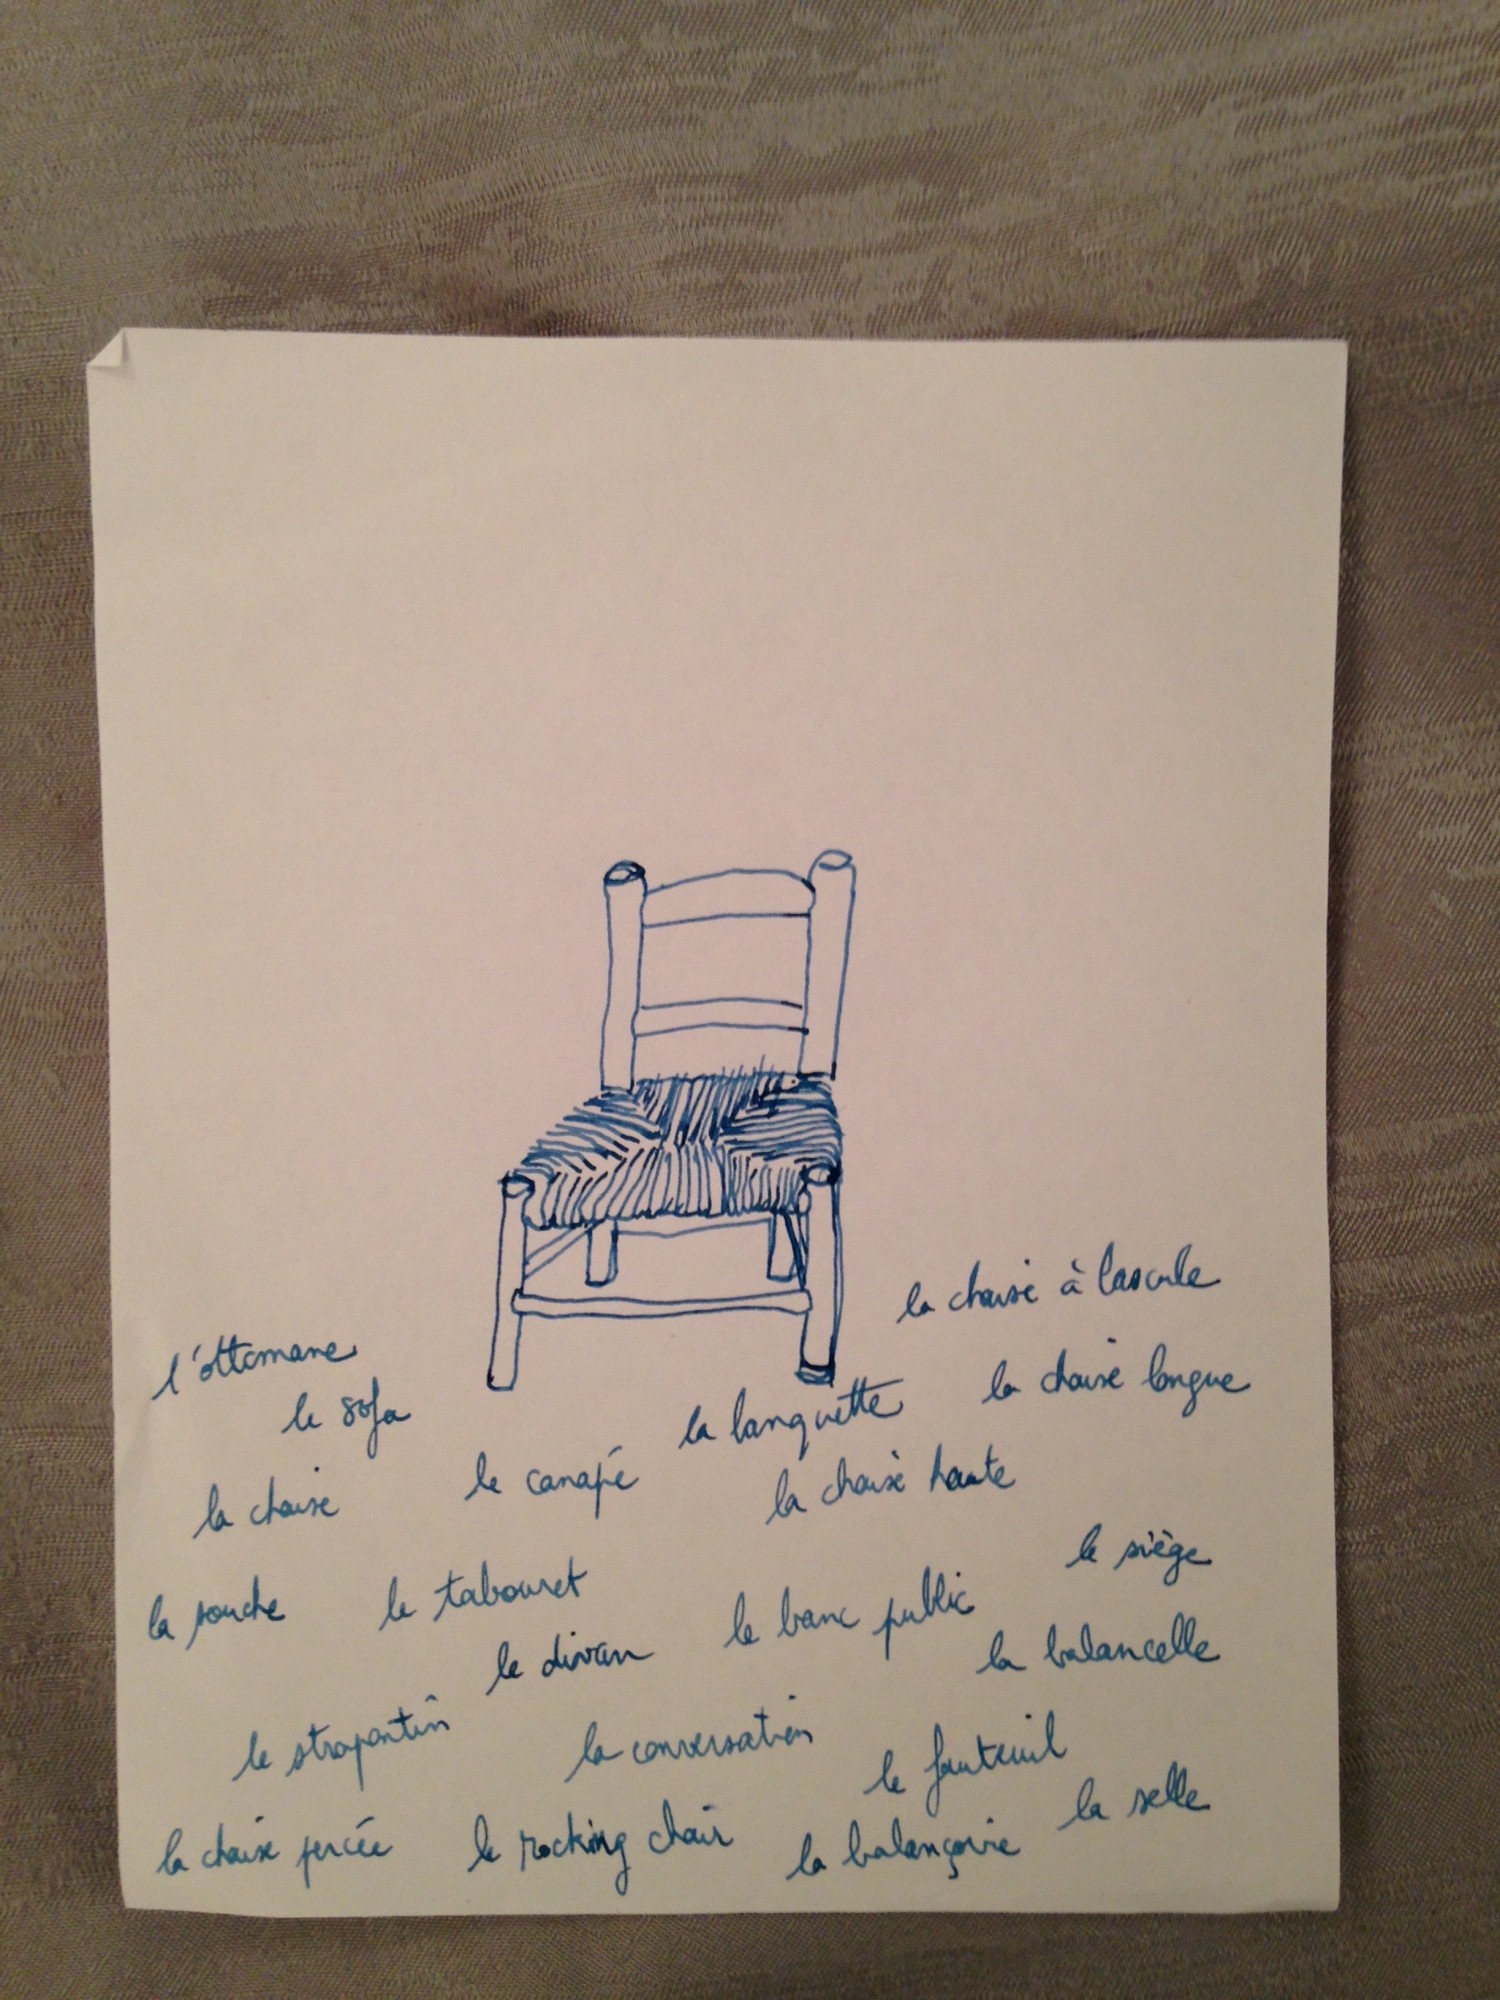 la chaise à bascule
l'ottomane
la chaise longue
le sofa
la banquette
le canapé
la chaise haute
la chaise
le siège
la souche
le tabouret
le banc public
le divan
la balancelle
le strapontin
la conversation
le fauteuil
la selle
la chaise percée
le rocking chair
la balançoire